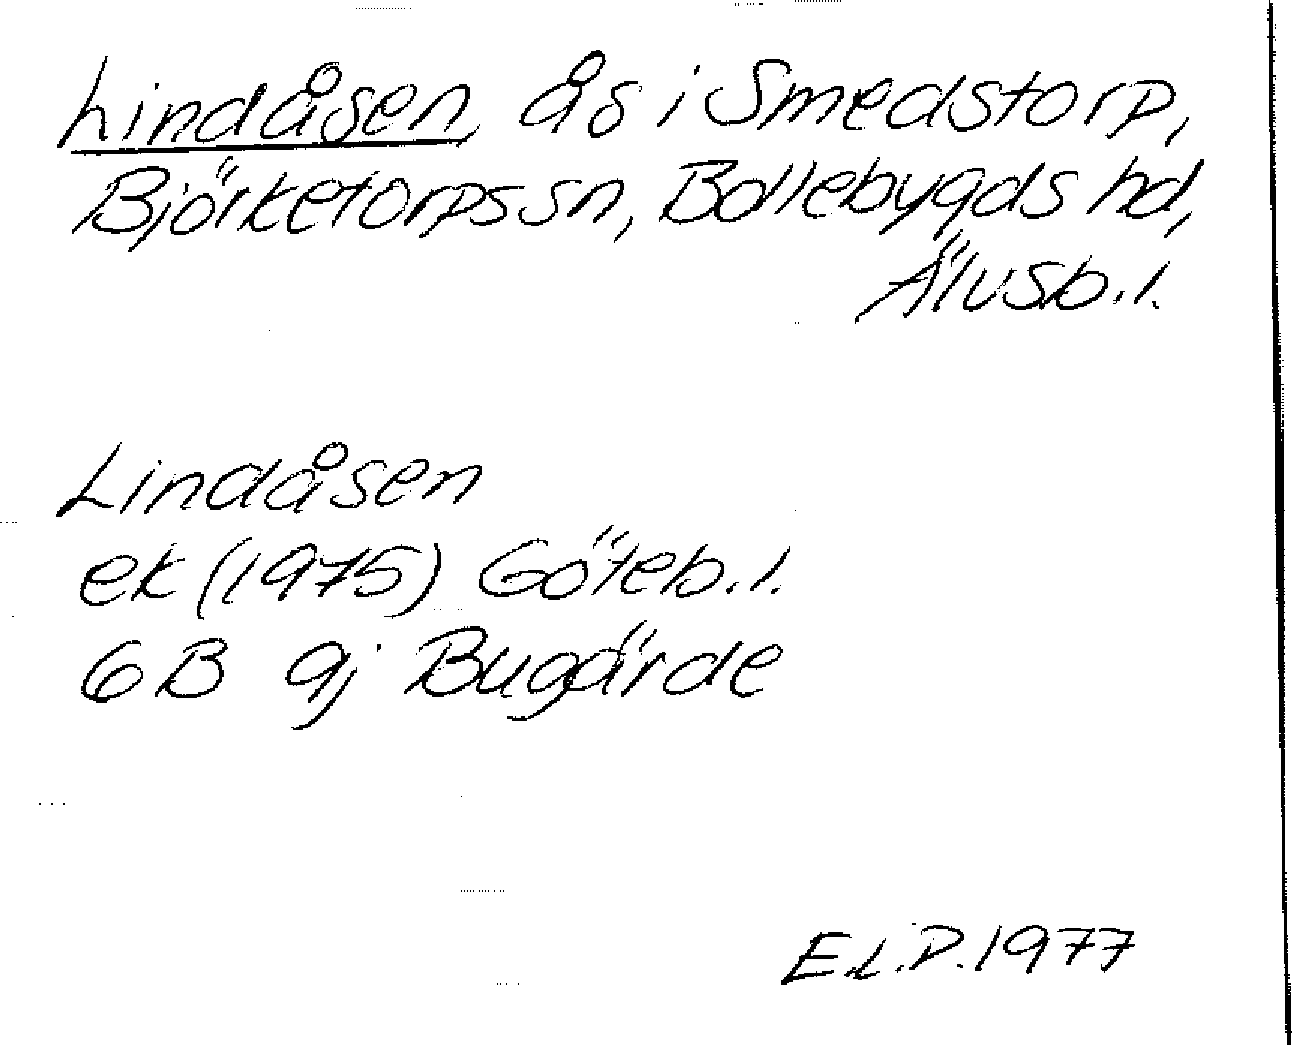 Lindåsen, ås i Smedstorp,
Björketorps sn, Bollebygds hd,
Älvsb. l.
Lindåsen
ek (1975) Göteb. l.
6B 9j Bugärde
E.L.D. 1977